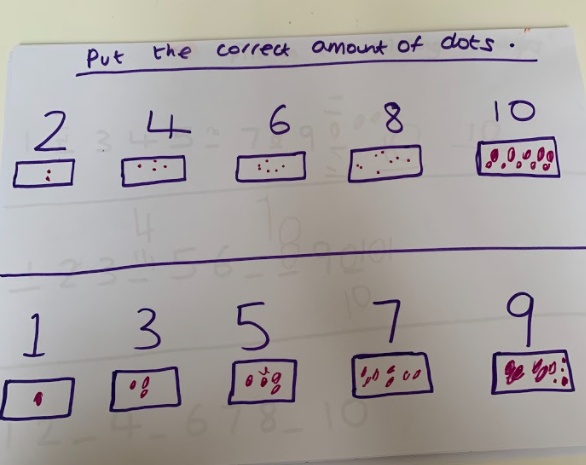 Put the correct amount of dots.
2 4 6 8 10
1 3 5 7 9